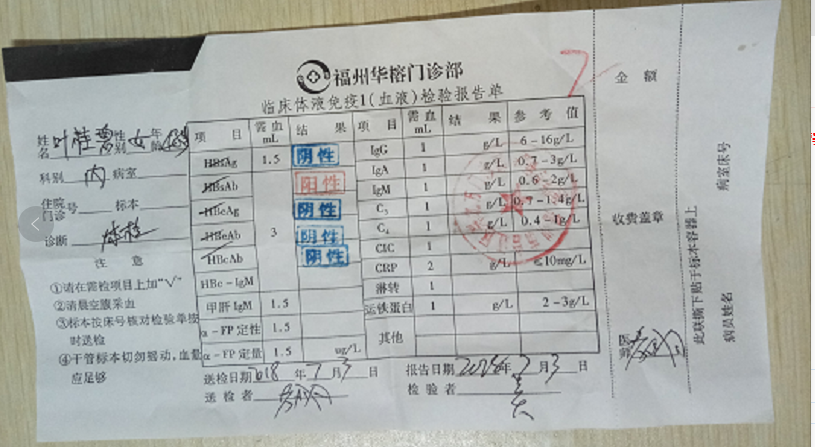 福州华榕门诊部
临床体液免疫1(血液)检验报告单
姓名 叶桂 性别 女 年龄
科别 内 病室
住院门诊号 标本
诊断 体检
注 意
①请在需检项目上加"√"
②清晨空腹采血
③标本按床号核对检验单按时送检
④干管标本切勿摇动,血量应足够
项 目 需血mL 结 果 项 目 需血mL 结 果 参 考 值
HBsAg 1.5 阴性 IgG 1 g/L 6-16g/L
HBsAb 阳性 IgA 1 g/L 0.7-3g/L
HBeAg 阴性 IgM 1 g/L 0.6-2g/L
HBeAb 3 阴性 C3 1 g/L 0.7-1.4g/L
HBcAb 阴性 C4 1 g/L 0.4-1g/L
HBc-IgM CIC 1
甲肝IgM 1.5 CRP 2 g/L ≤10mg/L
α-FP定性 1.5 淋转 1
α-FP定量 1.5 ug/L 运铁蛋白 1 g/L 2-3g/L
其他
送检日期 2018 年 7 月 3 日 报告日期 年 7 月 3 日
送检者 检验者
金 额
收费盖章
医师
此联撕下贴于标本容器上
病员姓名 病室床号